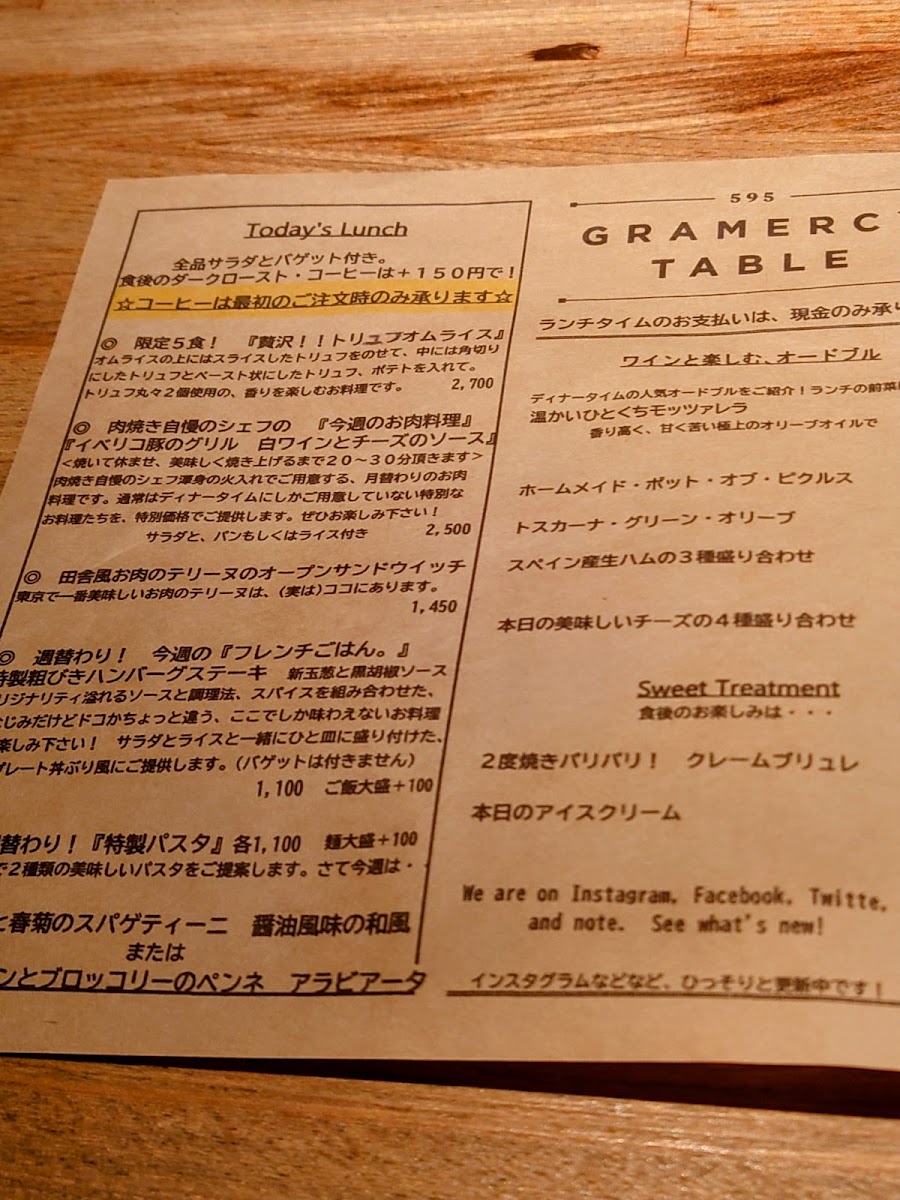 Today's Lunch
全品サラダとバゲット付き。
食後のダークロースト・コーヒーは＋１５０円で！
☆コーヒーは最初のご注文時のみ承ります☆
◎ 限定５食！ 『贅沢！！トリュフオムライス』
オムライスの上にはスライスしたトリュフをのせて、中には角切り
にしたトリュフとペースト状にしたトリュフ、ポテトを入れて。
トリュフ丸々２個使用の、香りを楽しむお料理です。 2,700
◎ 肉焼き自慢のシェフの 『今週のお肉料理』
『イベリコ豚のグリル 白ワインとチーズのソース』
＜焼いて休ませ、美味しく焼き上げるまで２０～３０分頂きます＞
肉焼き自慢のシェフ渾身の火入れでご用意する、月替わりのお肉
料理です。通常はディナータイムにしかご用意していない特別な
お料理たちを、特別価格でご提供します。ぜひお楽しみ下さい！
サラダと、パンもしくはライス付き 2,500
◎ 田舎風お肉のテリーヌのオープンサンドウイッチ
東京で一番美味しいお肉のテリーヌは、(実は)ココにあります。
1,450
◎ 週替わり！ 今週の『フレンチごはん。』
特製粗びきハンバーグステーキ 新玉葱と黒胡椒ソース
リジナリティ溢れるソースと調理法、スパイスを組み合わせた、
なじみだけどドコかちょっと違う、ここでしか味わえないお料理
楽しみ下さい！ サラダとライスと一緒にひと皿に盛り付けた、
プレート丼ぶり風にご提供します。(バゲットは付きません)
1,100 ご飯大盛＋100
替わり！『特製パスタ』各1,100 麺大盛＋100
で２種類の美味しいパスタをご提案します。さて今週は・・
と春菊のスパゲティーニ 醤油風味の和風
または
ンとブロッコリーのペンネ アラビアータ
595
GRAMERCY
TABLE
ランチタイムのお支払いは、現金のみ承り
ワインと楽しむ、オードブル
ディナータイムの人気オードブルをご紹介！ランチの前菜に
温かいひとくちモッツァレラ
香り高く、甘く苦い極上のオリーブオイルで
ホームメイド・ポット・オブ・ピクルス
トスカーナ・グリーン・オリーブ
スペイン産生ハムの３種盛り合わせ
本日の美味しいチーズの４種盛り合わせ
Sweet Treatment
食後のお楽しみは・・・
２度焼きパリパリ！ クレームブリュレ
本日のアイスクリーム
We are on Instagram, Facebook, Twitte,
and note. See what's new!
インスタグラムなどなど、ひっそりと更新中です！